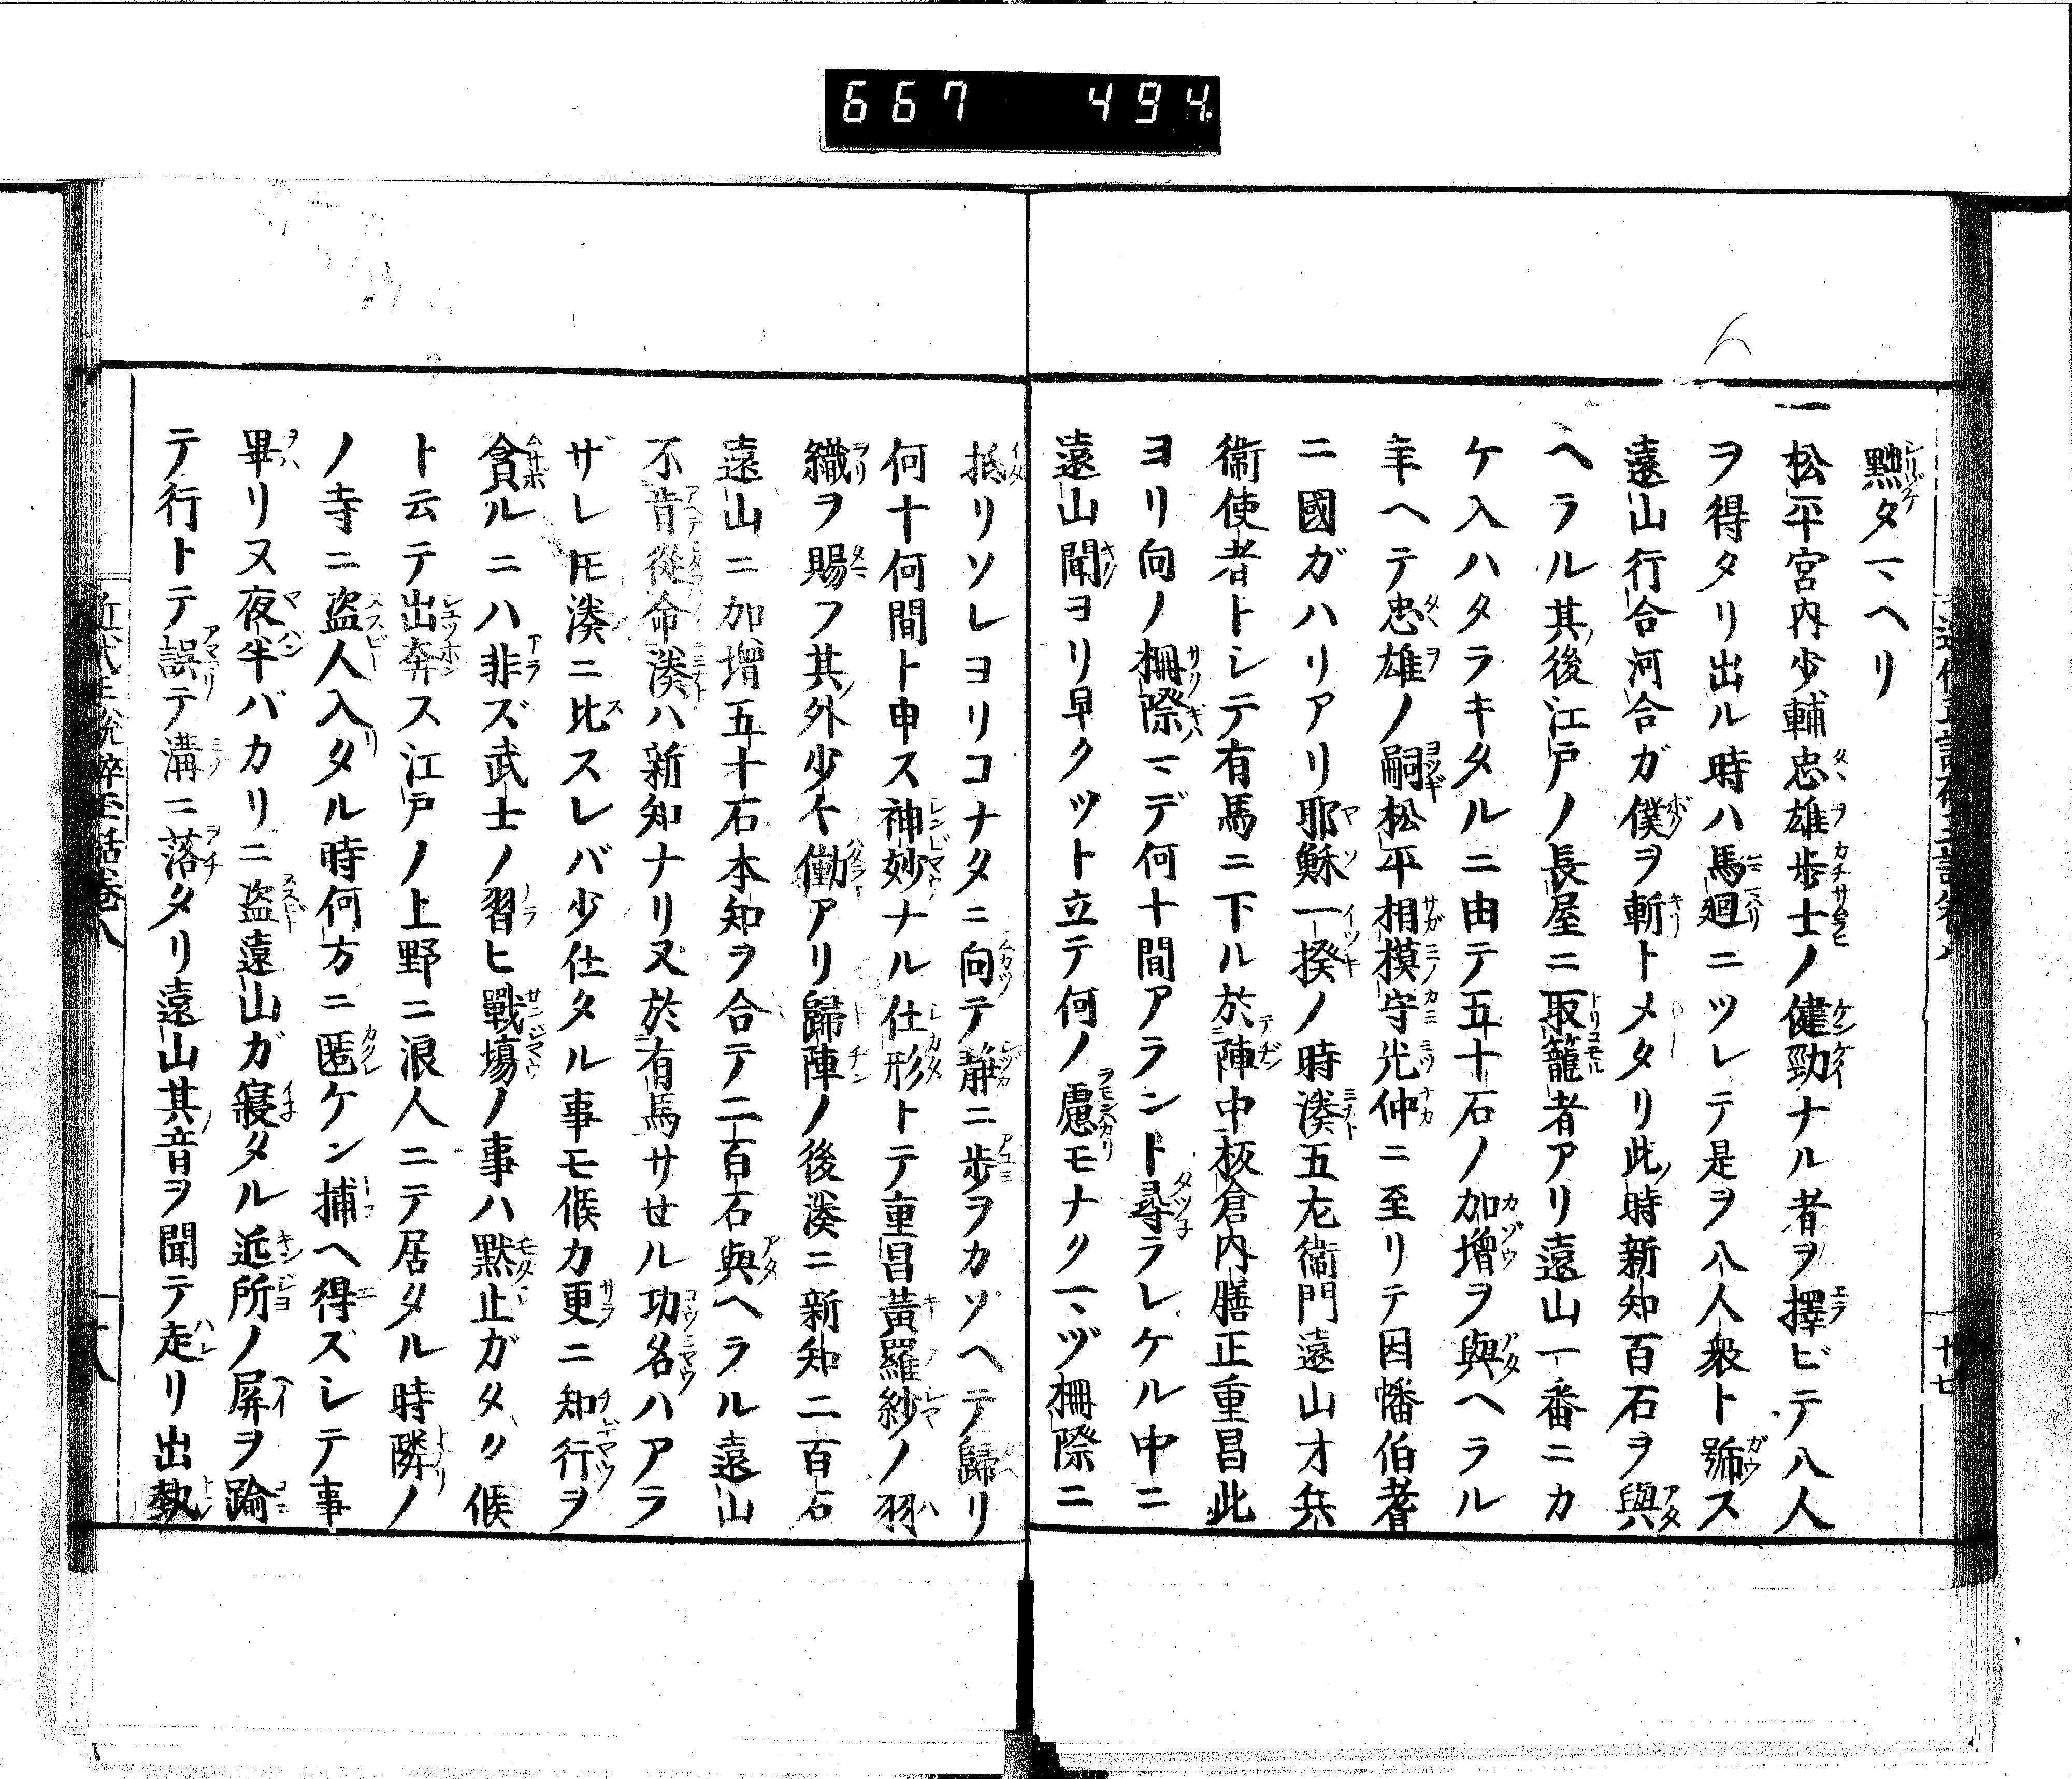 667 494.
黜タマヘリ
一松平宮内少輔忠雄歩士ノ健勁ナル者ヲ擇ビテ八人
ヲ得タリ出ル時ハ馬廻ニツレテ是ヲ八人衆ト號ス
遠山行合河合ガ僕ヲ斬トメタリ此時新知百石ヲ與
ヘラル其後江戸ノ長屋ニ取籠者アリ遠山一番ニカ
ケ入ハタラキタルニ由テ五十石ノ加增ヲ與ヘラル
年ヘテ忠雄ノ嗣松平相摸守光仲ニ至リテ因幡伯耆
ニ國ガハリアリ耶穌一揆ノ時湊五左衞門遠山才兵
衞使者トシテ有馬ニ下ル於陣中板倉内膳正重昌此
ヨリ向ノ柵際マデ何十間アラント尋ラレケル中ニ
遠山聞ヨリ早クツト立テ何ノ慮モナクマヅ柵際ニ
抵リソレヨリコナタニ向テ静ニ歩ヲカゾヘテ歸リ
何十何間ト申ス神妙ナル仕形トテ重昌黃羅紗ノ羽
織ヲ賜フ其外少々働アリ歸陣ノ後湊ニ新知二百石
遠山ニ加增五十石本知ヲ合テ二百石與ヘラル遠山
不肯從命湊ハ新知ナリ又於有馬サセル功名ハアラ
ザレ𪜈湊ニ比スレバ少仕タル事モ候カ更ニ知行ヲ
貪ルニハ非ズ武士ノ習ヒ戰塲ノ事ハ黙止ガタク候
ト云テ出奔ス江戸ノ上野ニ浪人ニテ居タル時隣ノ
ノ寺ニ盗人入タル時何方ニ匿ケン捕ヘ得ズシテ事
畢リヌ夜半バカリニ盗遠山ガ寢タル近所ノ屏ヲ踰
テ行トテ誤テ溝ニ落タリ遠山其音ヲ聞テ走リ出執